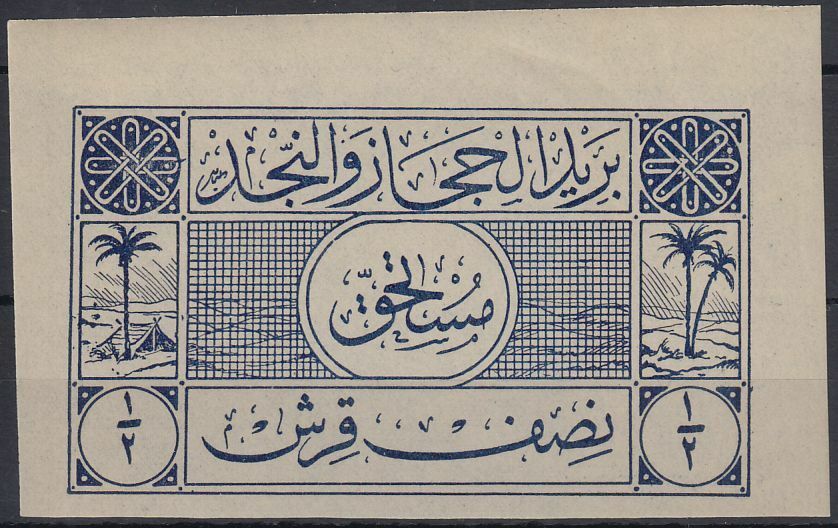 بَرِيدُ الحِجَازِ وَالنَّجْد
مُسْتَحَقّ
نِصْف قِرْش
١/٢ ١/٢